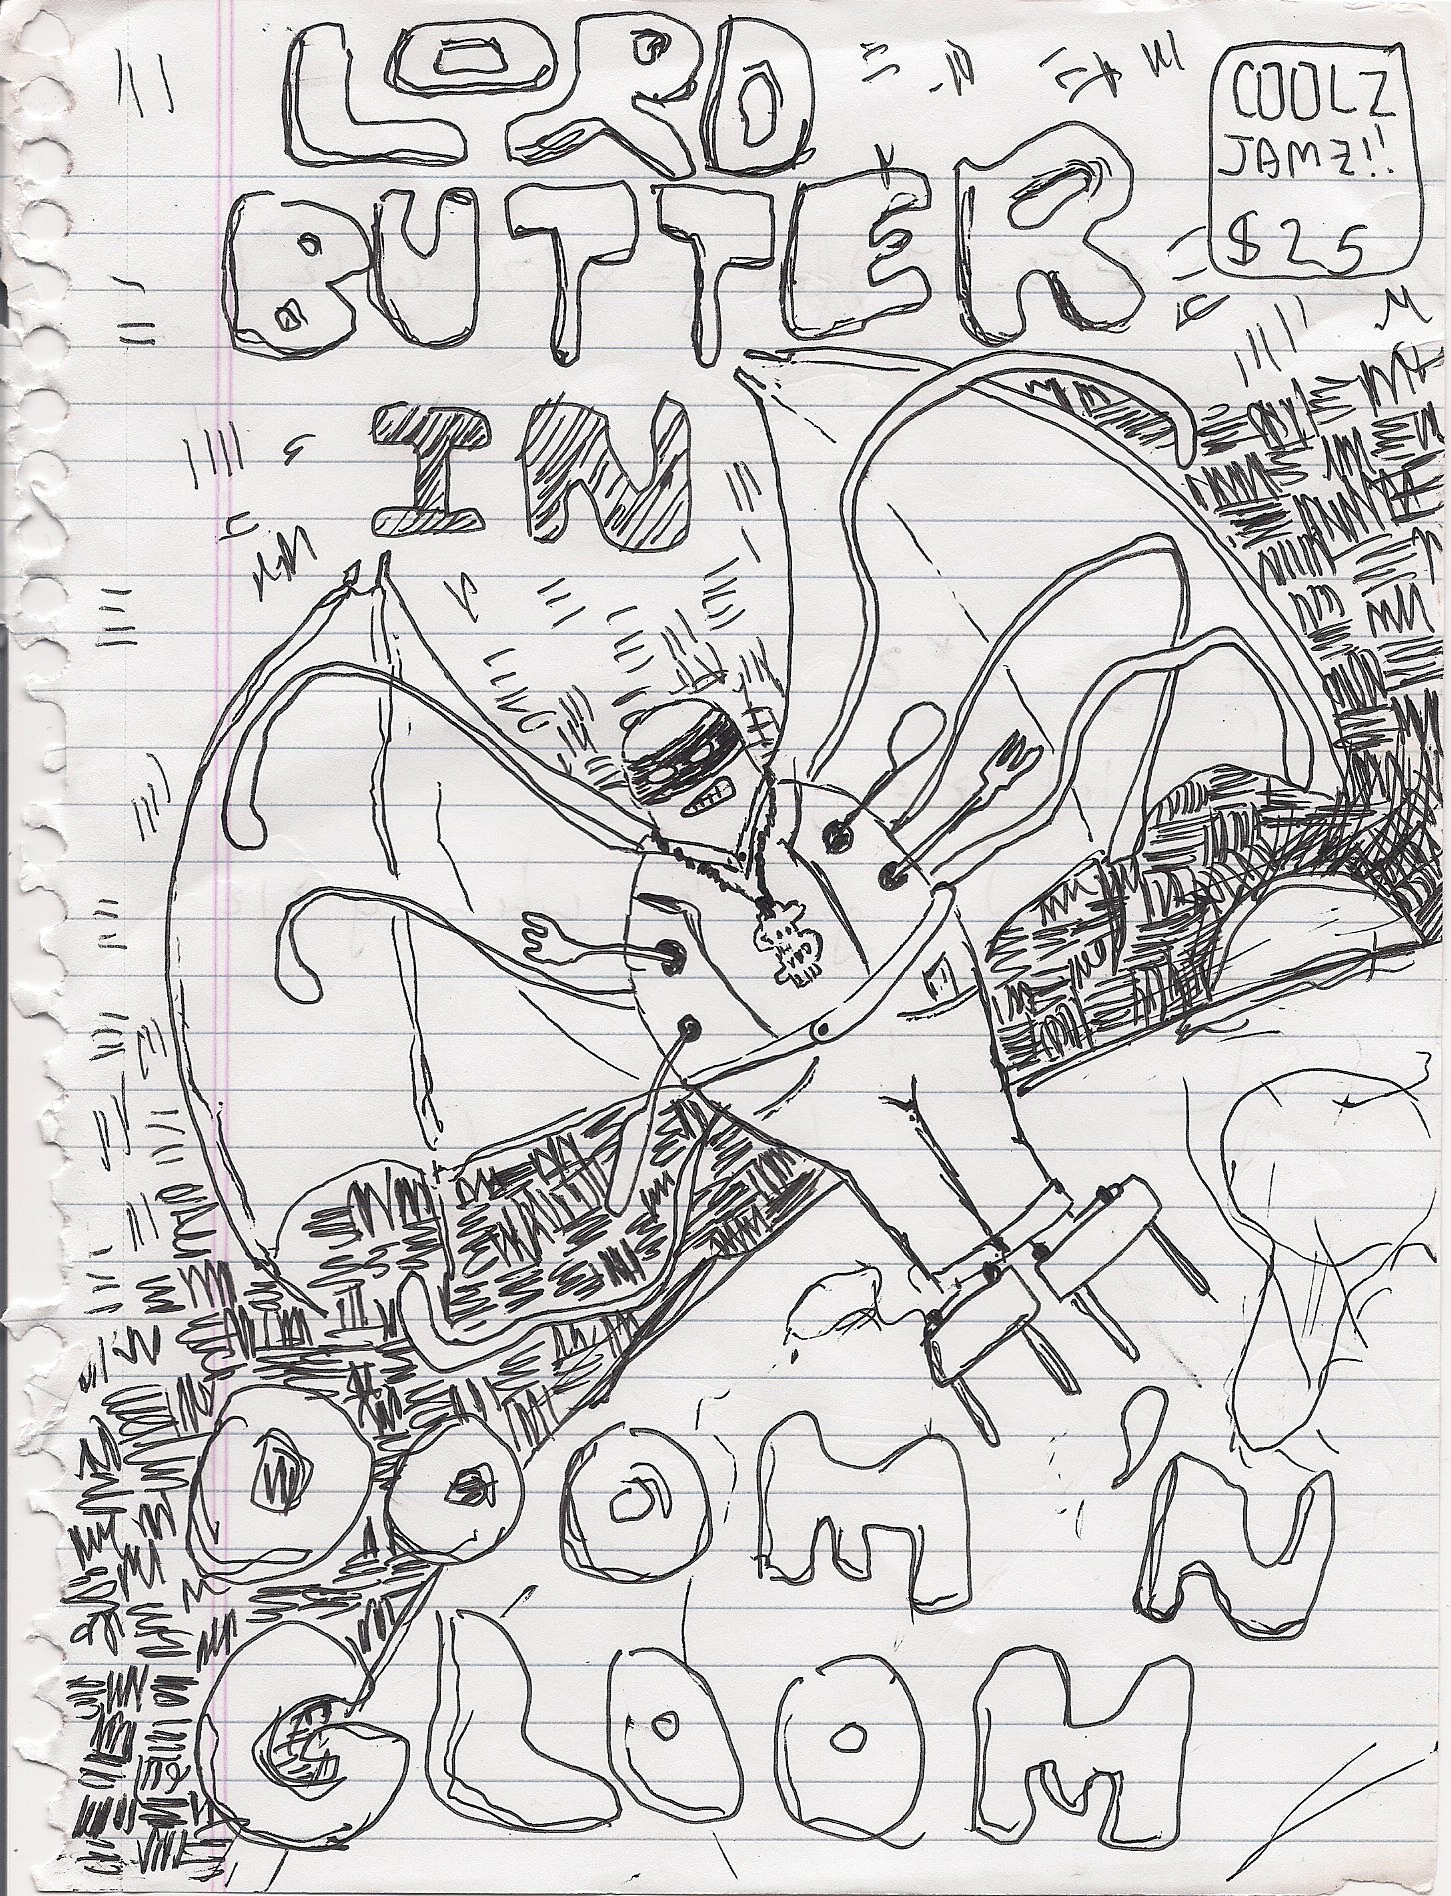 LORD
BUTTER
IN
COOLZ
JAMZ!!
$25
DOOM 'N
GLOOM